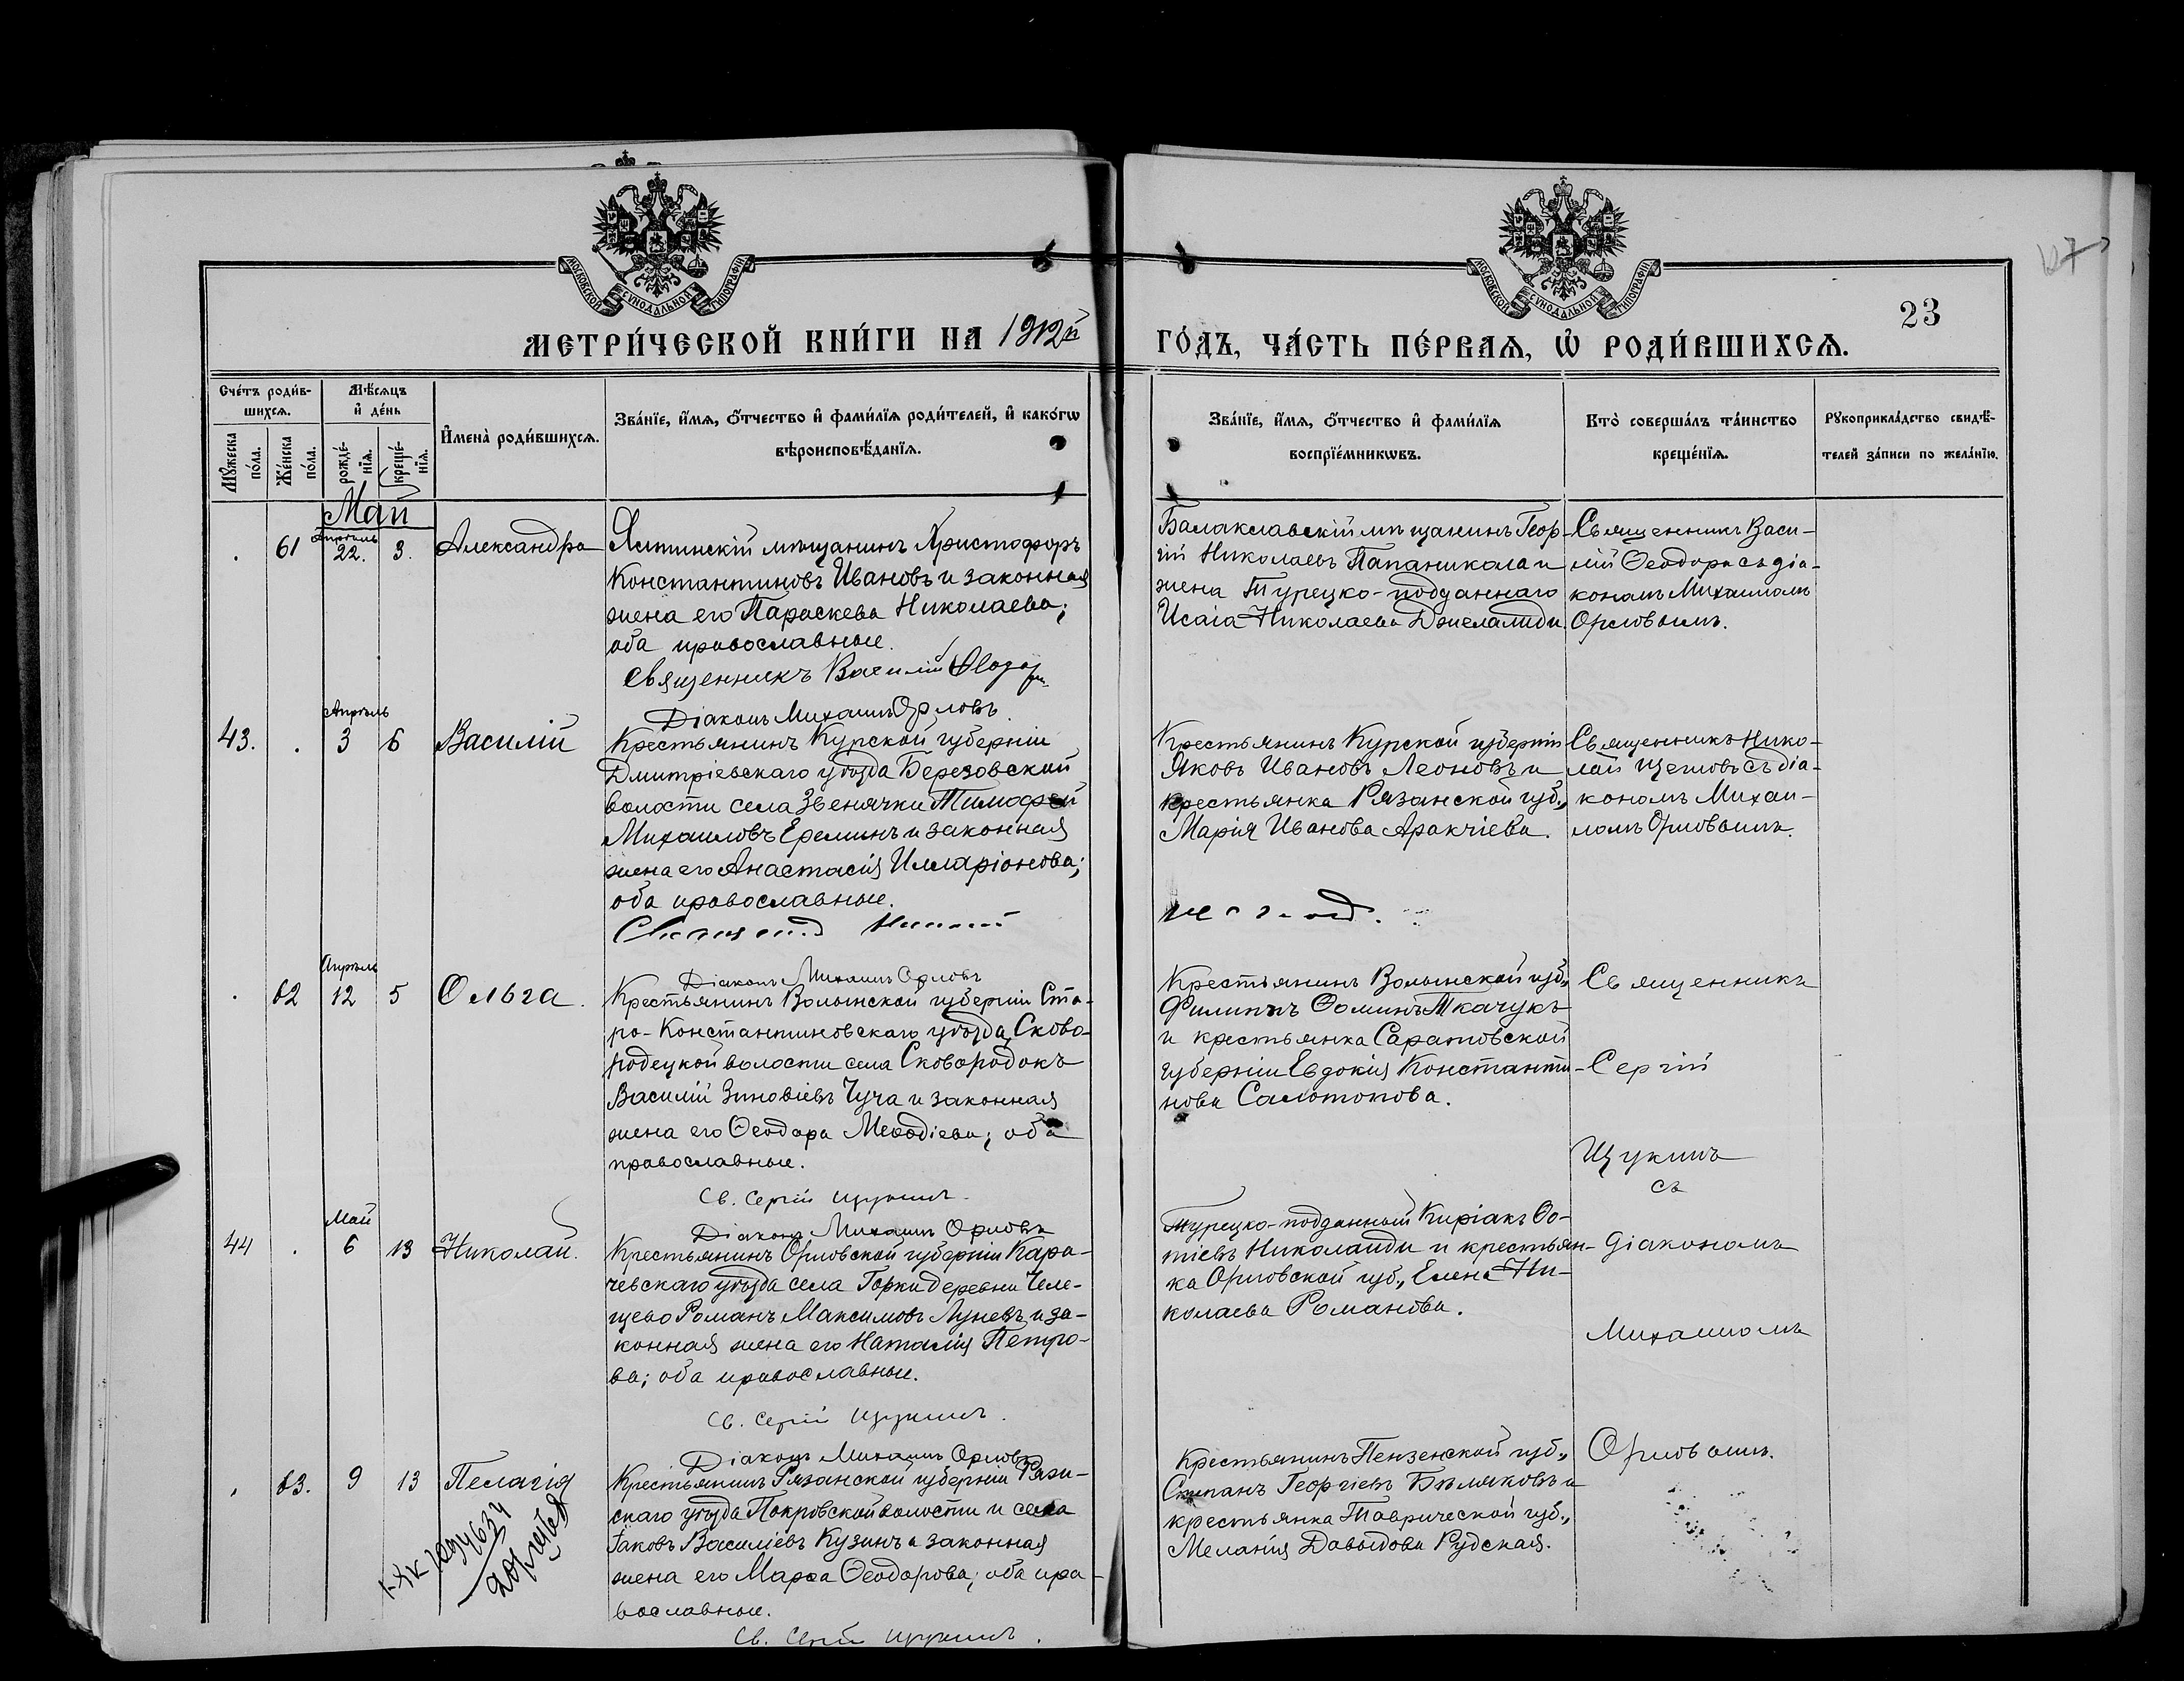 МОСКОВСКОЙ СѴНОДАЛЬНОЙ ТИПОГРАФІИ
МОСКОВСКОЙ СѴНОДАЛЬНОЙ ТИПОГРАФІИ
23
МЕТРИ́ЧЕСКОЙ КНИ́ГИ НА 1912й
ГО́ДЪ, ЧА́СТЬ ПЕ́РВАЯ, Ѡ҆ РОДИ́ВШИХСЯ.
Сче́тъ роди́в-
шихся.
Мѣ́сяцъ
и҆ де́нь
Мꙋ́жеска по́ла.
Же́нска по́ла.
рожде́-нїя.
креще́-нїя.
И҆мена̀ роди́вшихся.
Зва́нїе, и҆́мя, ѻ҆́тчество и҆ фами́лїя роди́телей, и҆ како́гѡ
вѣроисповѣ́данїя.
Зва́нїе, и҆́мя, ѻ҆́тчество и҆ фами́лїя
воспрїе́мникѡвъ.
Кто̀ соверша́лъ та́инство
креще́нїя.
Рꙋкоприкла́дство свидѣ́-
телей за́писи по жела́нїю.
Май
Апрѣль
. 61 22. 3. Александра
Ялтинскій мѣщанинъ Христофоръ
Константиновъ Ивановъ и законная
жена его Параскева Николаева;
оба православные.
Священникъ Василій Ѳеодори
Діаконъ Михаилъ Орловъ.
Балаклавскій мѣщанинъ Геор-
гій Николаевъ Папаникола и
жена Турецко-подданнаго
Исаія Николаева Джелалиди.
Священникъ Васи-
лій Ѳеодори съ діа-
кономъ Михаиломъ
Орловымъ.
Апрѣль
43. . 3 6 Василій
Крестьянинъ Курской губерніи
Дмитріевскаго уѣзда Березовской
волости села Звенячки Тимофей
Михаиловъ Ереминъ и законная
жена его Анастасія Илларіонова;
оба православные.
Діаконъ Михаилъ Орловъ
Крестьянинъ Курской губерніи
Яковъ Ивановъ Леоновъ и
крестьянка Рязанской губ.,
Марія Иванова Аракчіева.
Священникъ Нико-
лай Щегловъ съ діа-
кономъ Михаи-
ломъ Орловымъ.
Апрѣль
. 62 12 5 Ольга.
Крестьянинъ Волынской губерніи Ста-
ро-Константиновскаго уѣзда, Сково-
родецкой волости села Сковородокъ
Василій Зиновіевъ Чуча и законная
жена его Ѳеодора Меѳодіева; оба
православные.
Св. Сергій Щукинъ.
Діаконъ Михаилъ Орловъ
Крестьянинъ Волынской губ.,
Филиппъ Ѳоминъ Ткачукъ
и крестьянка Саратовской
губерніи Евдокія Константи-
нова Саломотова.
Священникъ
Сергій
Щукинъ
съ
діакономъ
Михаиломъ
Орловымъ.
Май
44 . 6 13 Николай.
Крестьянинъ Орловской губерніи Кара-
чевскаго уѣзда села Горки деревни Челе-
щево Романъ Максимовъ Луневъ и за-
конная жена его Наталія Петро-
ва; оба православные.
Св. Сергій Щукинъ.
Діаконъ Михаилъ Орловъ
Турецко-подданный Киріакъ Фо-
тіевъ Николаиди и крестьян-
ка Орловской губ., Елена Ни-
колаева Романова.
. 63. 9 13 Пелагія
Крестьянинъ Рязанской губерніи Ряж-
скаго уѣзда Покровской волости и села
Іаковъ Василіевъ Кузинъ и законная
жена его Марѳа Ѳеодорова; оба пра-
вославные.
Св. Сергій Щукинъ.
Крестьянинъ Пензенской губ.,
Степанъ Георгіевъ Бѣляковъ и
крестьянка Таврической губ.,
Меланія Давыдова Рудская.